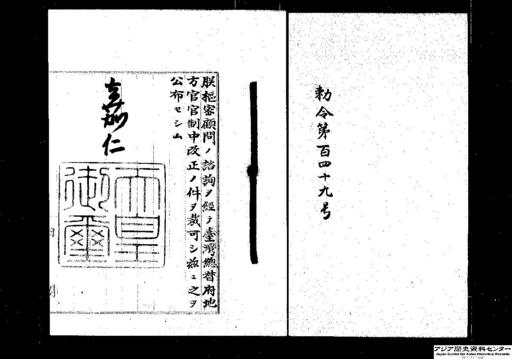 勅令第百四十九号
朕枢密顧問ノ諮詢ヲ経テ臺灣總督府地
方官官制中改正ノ件ヲ裁可シ茲ニ之ヲ
公布セシム
嘉仁
天皇
御璽
アジア歴史資料センター
Japan Center for Asian Historical Records